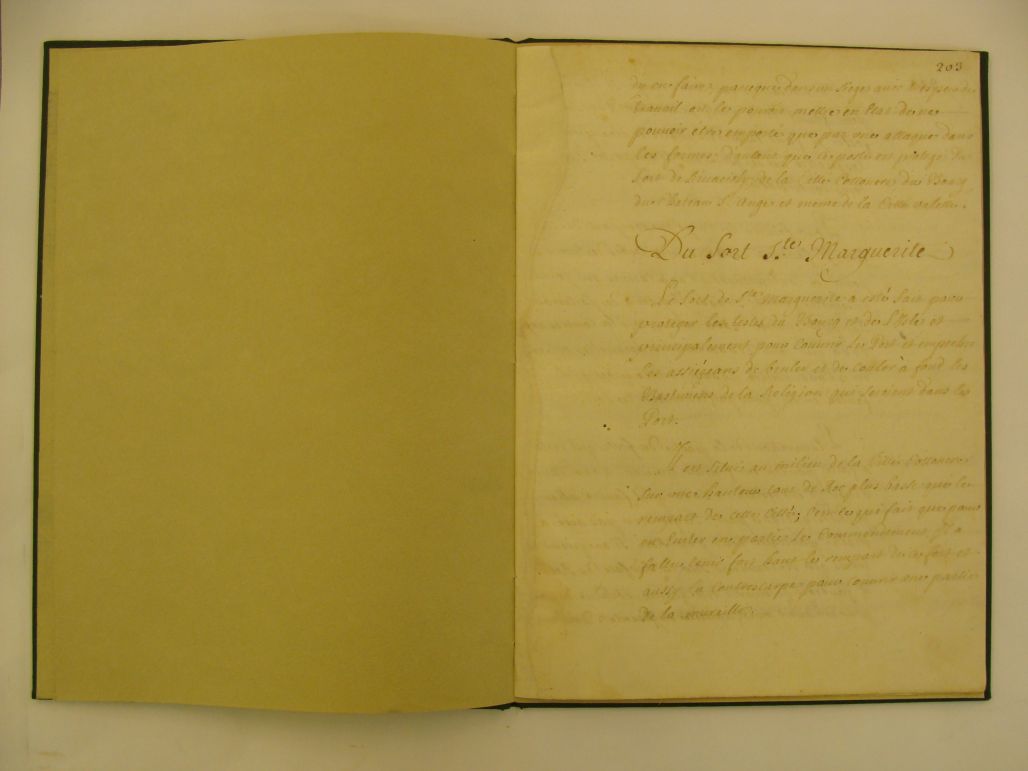 203
de en faire, parceque dans un siege avec
travail on le pouvoit mettre en Etat de ne
pouvoir être emporté que par une attaque dans
les formes, d'autant que ce poste est protegé du
fort de de la Citté Cottonere du Bourg
du Chateau S. Ange et meme de la Citté valette.
Du Fort S.te Marguerite
Le Fort de S.te Marguerite a esté fait pour
proteger les testes du Bourg et de l'Isle et
principalement pour Couvrir le Port et empecher
les assiégeans de bruler et de couler à fond les
Bastimens de la Religion qui seroient dans le
Port.
Il est situé au milieu de la Citté Cottonere
sur une hauteur de Roc plus basse que le
rempart de cette Citté; c'en est ce qui fait que pour
en eviter en partie le Commandement, Il a
fallu tenir fort haut le rempart de ce fort et
aussy la Contrescarpe pour couvrir une partie
de la muraille.